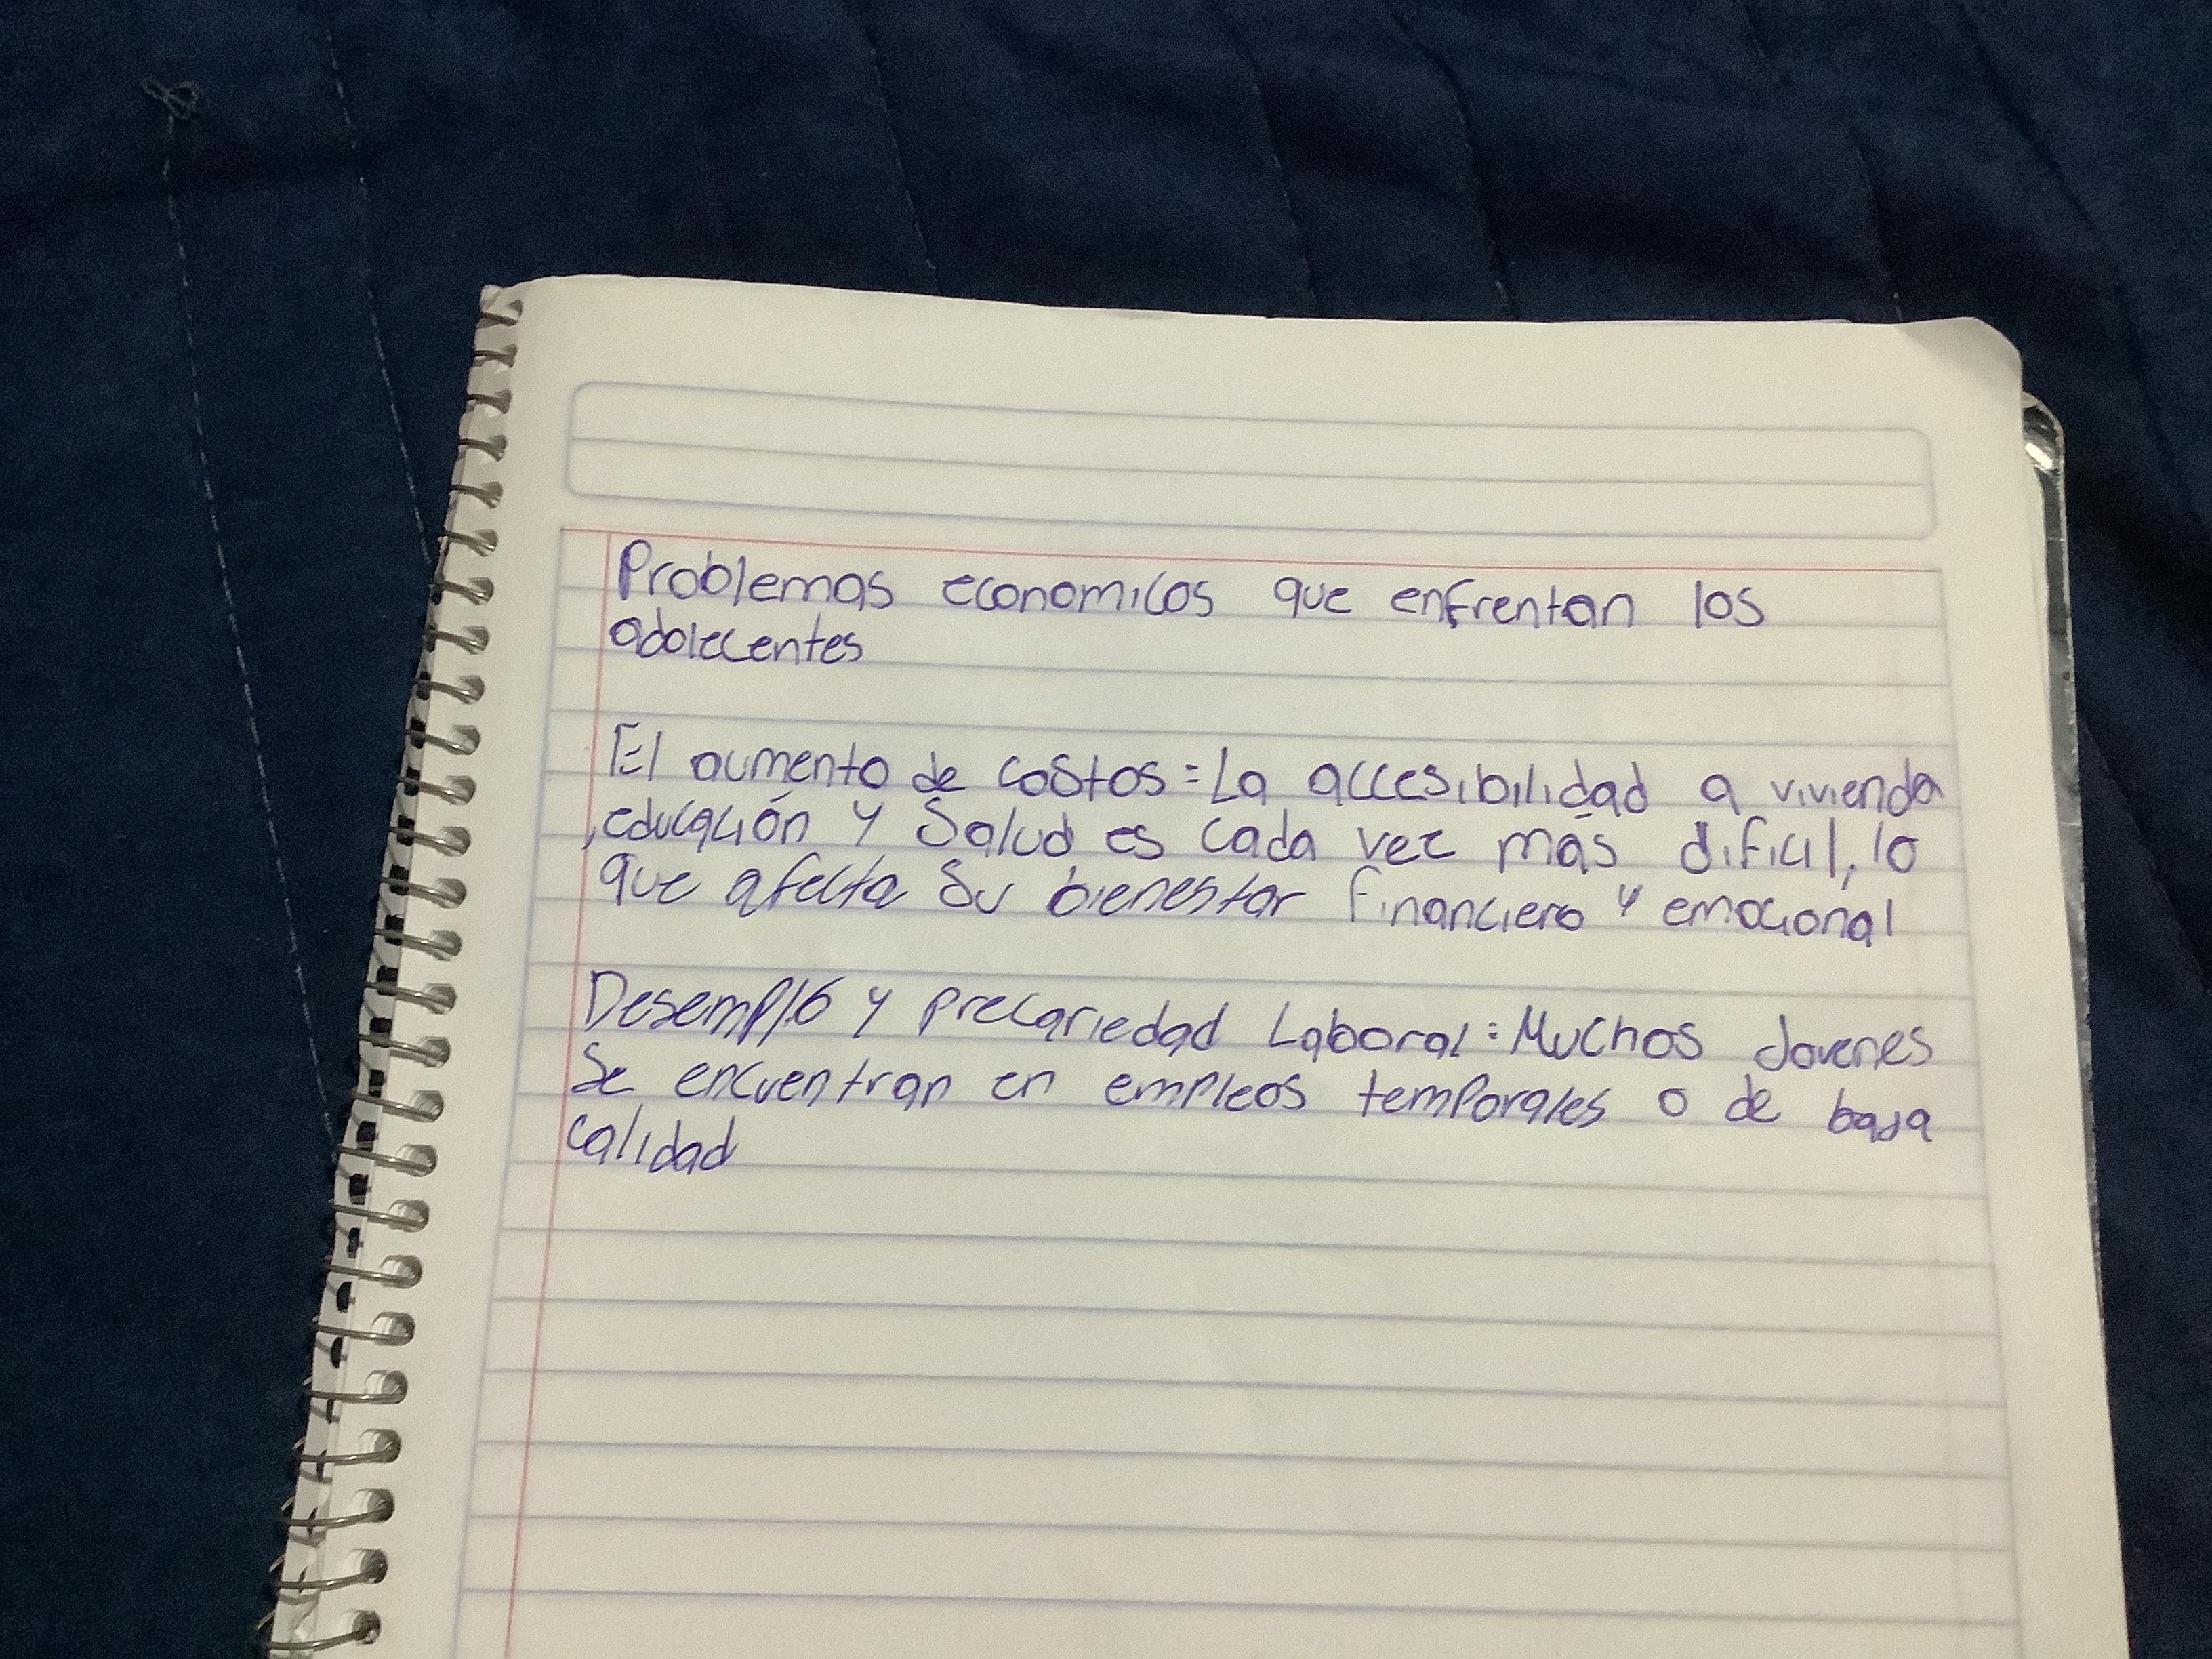 Problemas economicos que enfrentan los
adolecentes
El aumento de costos = La accesibilidad a vivienda
,educación y Salud es cada vez más dificil, lo
que afecta su bienestar financiero y emocional
Desemplo y precariedad Laboral = Muchos Jovenes
Se encuentran en empleos temporales o de baja
calidad